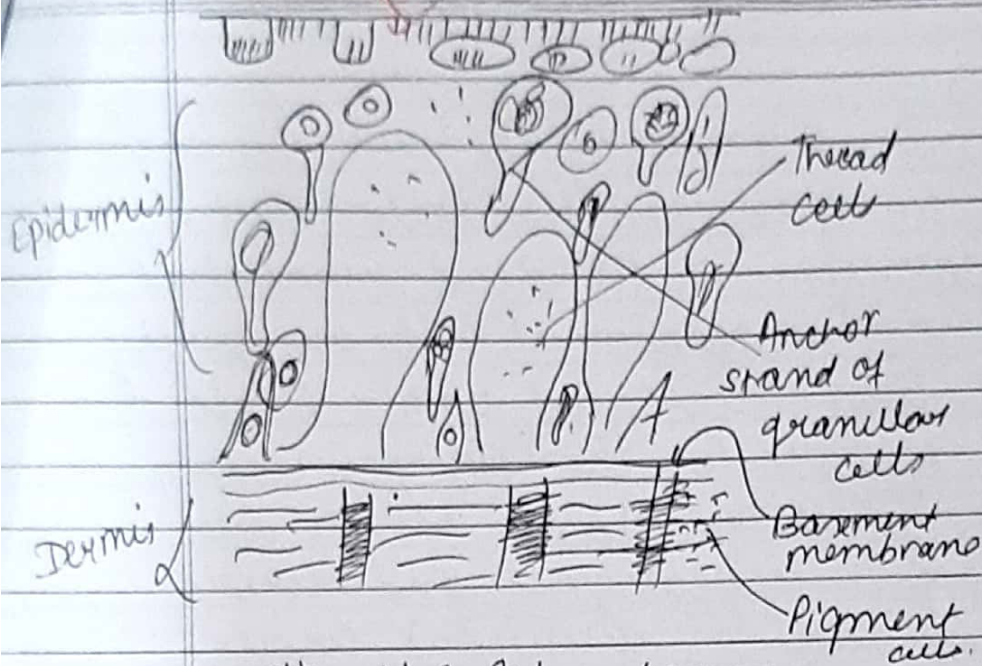 Epidermis
Thread
cell
Anchor
strand of
granular
cells
Basement
membrane
Dermis
Pigment
cells.